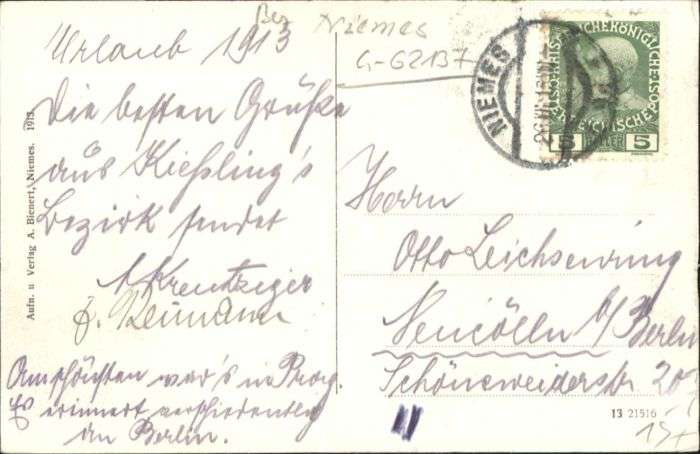 Bez Niemes
G-62137
Urlaub 1913
Die besten Grüße
aus Kießling's
Bezirk sendet
A. Kreutziger
F. Neumann
Am schönsten war's in Prag.
Es erinnert verschiedentlich
an Berlin.
Aufn. u Verlag A. Bienert, Niemes. 1913
NIEMES
5 HELLER 5
Herrn
Otto Leichsenring
Neucölln b/Berlin
Schöneweiderstr 20
II
13 21516
15,-